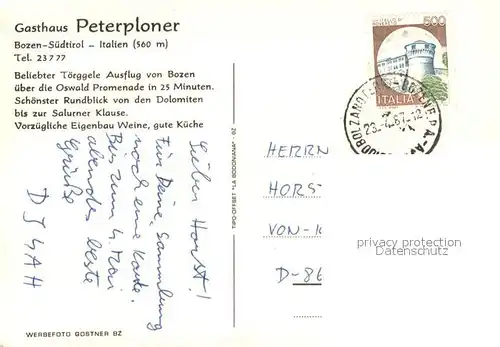 Gasthaus Peterploner
Bozen-Südtirol – Italien (560 m)
Tel. 23777
Beliebter Törggele Ausflug von Bozen
über die Oswald Promenade in 25 Minuten.
Schönster Rundblick von den Dolomiten
bis zur Salurner Klause.
Vorzügliche Eigenbau Weine, gute Küche
Lieber Horst!
Für Deine Sammlung
noch eine Karte.
Bis zum 4. Mai
abends beste
Grüße
WERBEFOTO GOSTNER BZ
TIPO-OFFSET "LA BODONIANA" - BZ
500
ITALIA
HERRN
HORST
VON-
D-86
privacy protection
Datenschutz